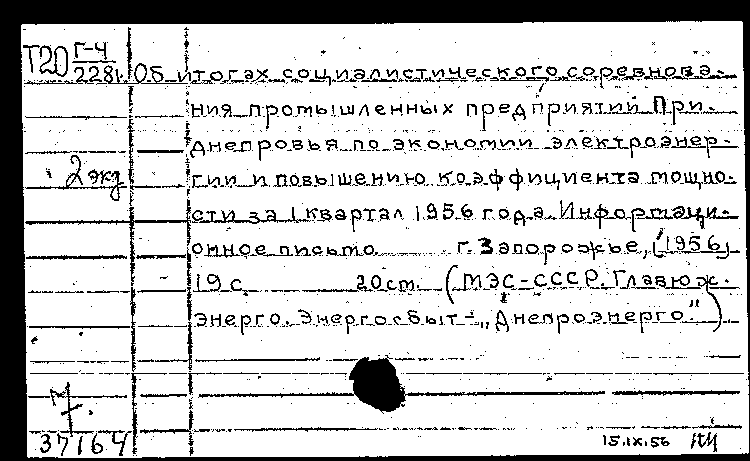 Т20 Г-4
228г. Об итогах социалистического соревнова-
ния промышленных предприятий При-
днепровья по экономии электроэнер-
2 экз гии и повышению коэффициента мощно-
сти за 1 квартал 1956 года. Информаци-
онное письмо г. Запорожье, (1956)
19 с. 20 см. (МЭС-СССР. Главюж-
энерго. Энергосбыт - "Днепроэнерго")
37164
15.IX.56